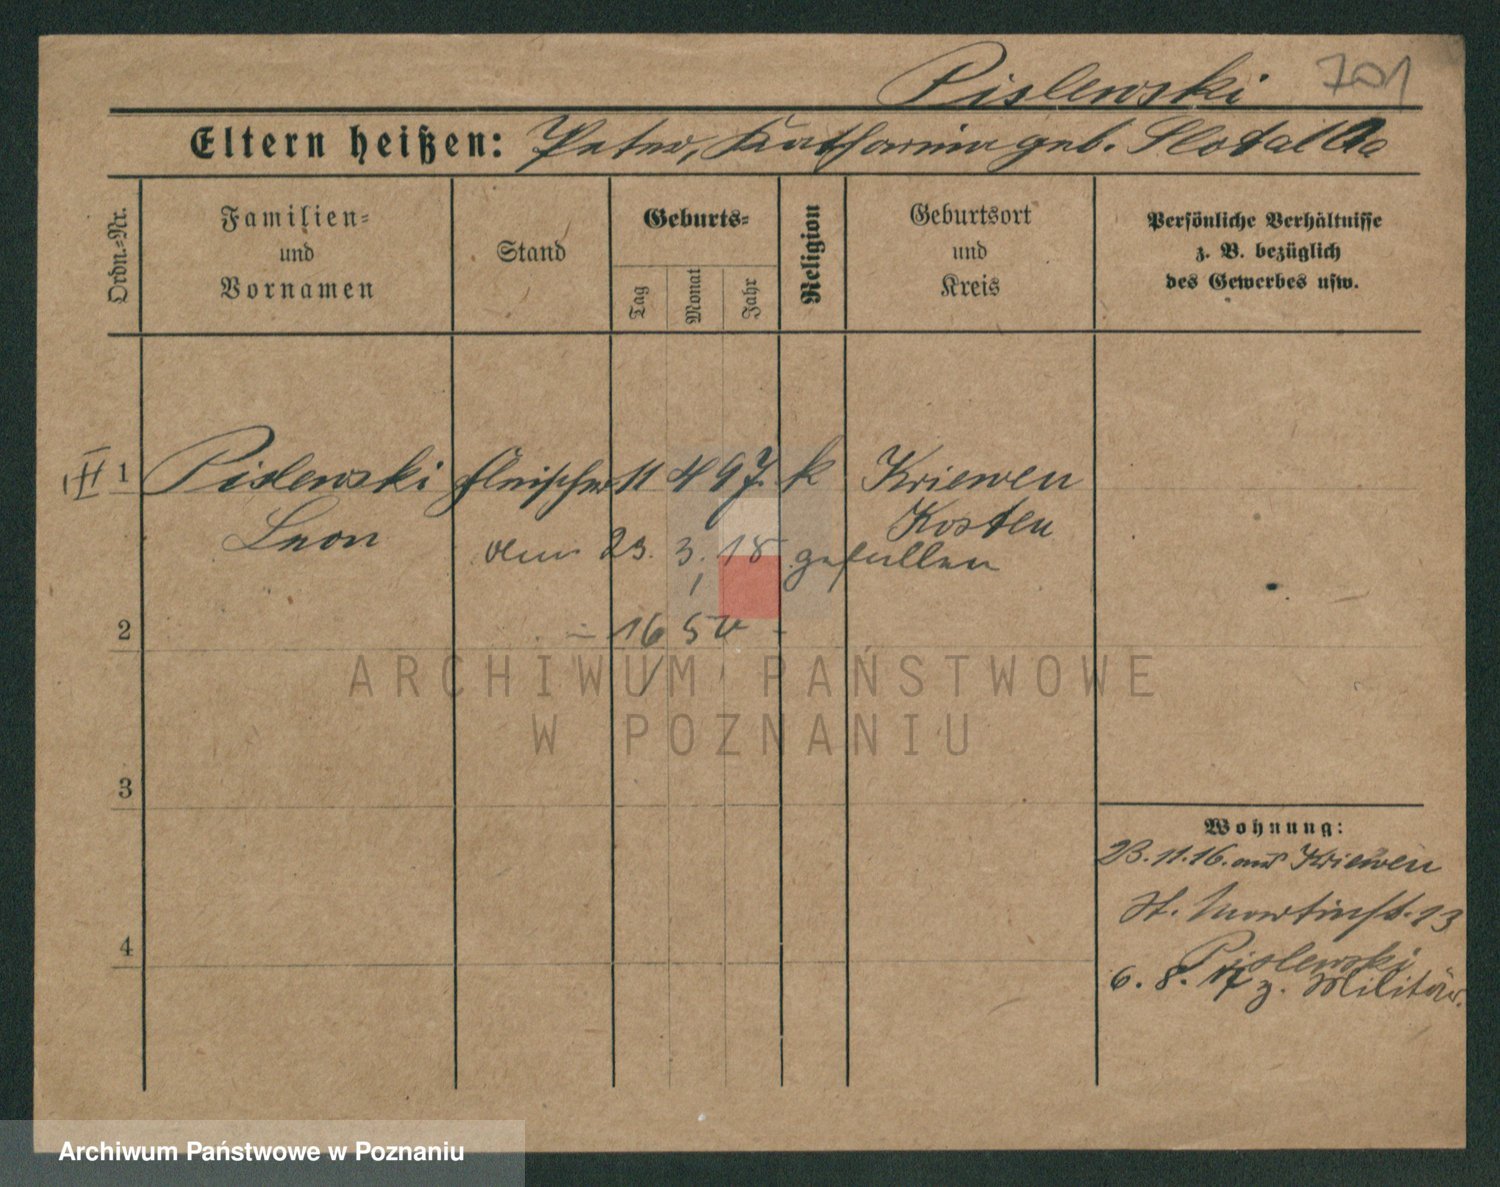 Pislewski 701
Eltern heißen: Peter, Katharina geb.
Ordn.=Nr.
Familien=
und
Vornamen
Stand
Geburts=
Tag
Monat
Jahr
Religion
Geburtsort
und
Kreis
Persönliche Verhältnisse
z. B. bezüglich
des Gewerbes usw.
1 Pislewski Fleischer 11 4 97. k Kriewen
Leon Kosten
23. 3. 18 gefallen
2
16 50
ARCHIWUM PAŃSTWOWE
W POZNANIU
3
Wohnung:
23.11.16. aus Kriewen
St. Martinst. 23
4
Pislewski
6. 8. 17 z. Militär.
Archiwum Państwowe w Poznaniu